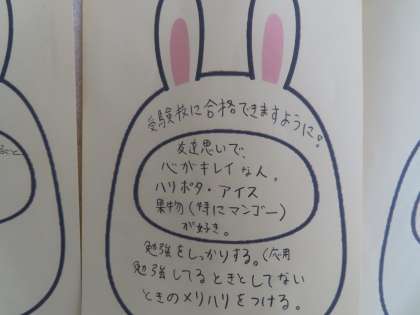 受験校に合格できますように!
友達思いで、
心がキレイな人。
ハリポタ・アイス
果物(特にマンゴー)
が好き。
勉強をしっかりする。(応用
勉強してるときとしてない
ときのメリハリをつける。